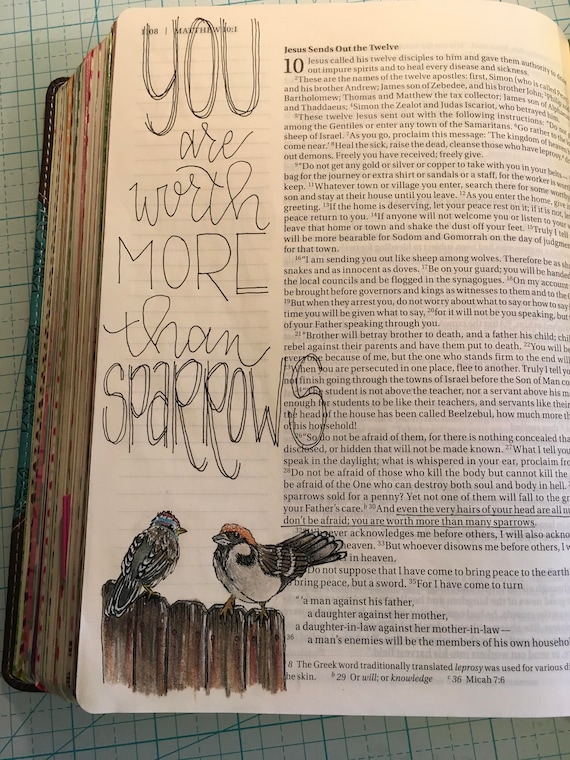 1208 | MATTHEW 10:1
YOU
are
worth
MORE
than
SPARROWS
Jesus Sends Out the Twelve
10 Jesus called his twelve disciples to him and gave them authority to
out impure spirits and to heal every disease and sickness.
2These are the names of the twelve apostles: first, Simon (who is called
and his brother Andrew; James son of Zebedee, and his brother John; Philip
Bartholomew; Thomas and Matthew the tax collector; James son of
and Thaddaeus; 4Simon the Zealot and Judas Iscariot, who betrayed him.
5These twelve Jesus sent out with the following instructions: "Do not
among the Gentiles or enter any town of the Samaritans. 6Go rather to the
sheep of Israel. 7As you go, proclaim this message: 'The kingdom of heaven
come near.' 8Heal the sick, raise the dead, cleanse those who have leprosy,
out demons. Freely you have received; freely give.
9"Do not get any gold or silver or copper to take with you in your belts—
bag for the journey or extra shirt or sandals or a staff, for the worker is worth
keep. 11Whatever town or village you enter, search there for some worthy
son and stay at their house until you leave. 12As you enter the home, give
greeting. 13If the home is deserving, let your peace rest on it; if it is not, let
peace return to you. 14If anyone will not welcome you or listen to your
leave that home or town and shake the dust off your feet. 15Truly I tell
will be more bearable for Sodom and Gomorrah on the day of judgment
for that town.
16"I am sending you out like sheep among wolves. Therefore be as
snakes and as innocent as doves. 17Be on your guard; you will be handed
the local councils and be flogged in the synagogues. 18On my account
be brought before governors and kings as witnesses to them and to the
19But when they arrest you, do not worry about what to say or how to say
time you will be given what to say, 20for it will not be you speaking, but
of your Father speaking through you.
21"Brother will betray brother to death, and a father his child;
rebel against their parents and have them put to death. 22You will be
everyone because of me, but the one who stands firm to the end will
When you are persecuted in one place, flee to another. Truly I tell
not finish going through the towns of Israel before the Son of Man
student is not above the teacher, nor a servant above his
enough for students to be like their teachers, and servants like their
the head of the house has been called Beelzebul, how much more
of his household!
26"So do not be afraid of them, for there is nothing concealed that
disclosed, or hidden that will not be made known. 27What I tell you
speak in the daylight; what is whispered in your ear, proclaim from
28Do not be afraid of those who kill the body but cannot kill the
be afraid of the One who can destroy both soul and body in hell.
sparrows sold for a penny? Yet not one of them will fall to the
your Father's care.b 30And even the very hairs of your head are all
don't be afraid; you are worth more than many sparrows.
32"Whoever acknowledges me before others, I will also
heaven. 33But whoever disowns me before others, I
in heaven.
Do not suppose that I have come to bring peace to the earth
bring peace, but a sword. 35For I have come to turn
"'a man against his father,
a daughter against her mother,
a daughter-in-law against her mother-in-law—
36 a man's enemies will be the members of his own household
8 The Greek word traditionally translated leprosy was used for various
the skin. b 29 Or will; or knowledge c 36 Micah 7:6